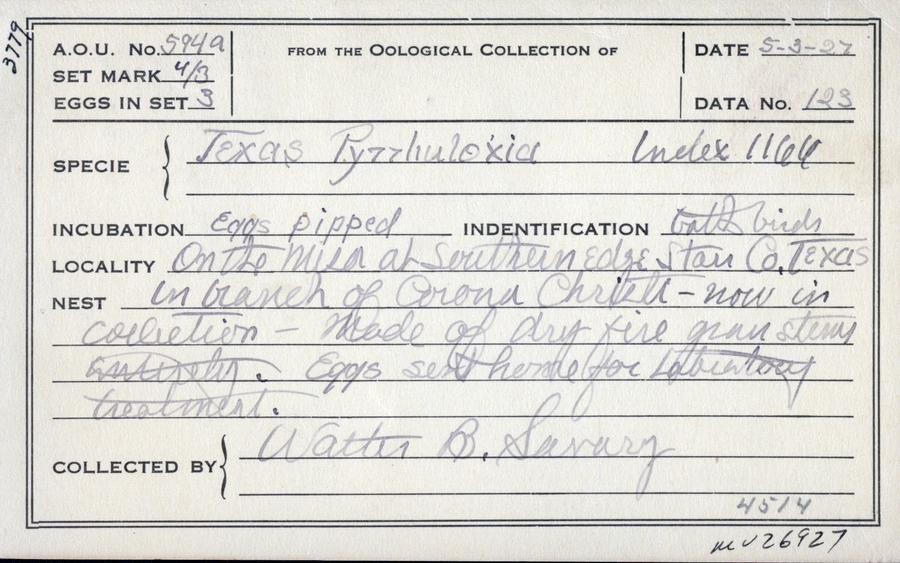 3779
A.O.U. No. 594a
SET MARK 4/3
EGGS IN SET 3
FROM THE OOLOGICAL COLLECTION OF
DATE 5-3-27
DATA No. 123
SPECIE Texas Pyrrhuloxia Index 1166
INCUBATION Eggs pipped INDENTIFICATION both birds
LOCALITY On the Mesa at Southern edge Starr Co, Texas
NEST in branch of Corona Christi - now in
collection - Made of dry fine grass stems
entirely. Eggs sent home for Laboratory
treatment.
COLLECTED BY Walter B. Savary
4514
MV26927